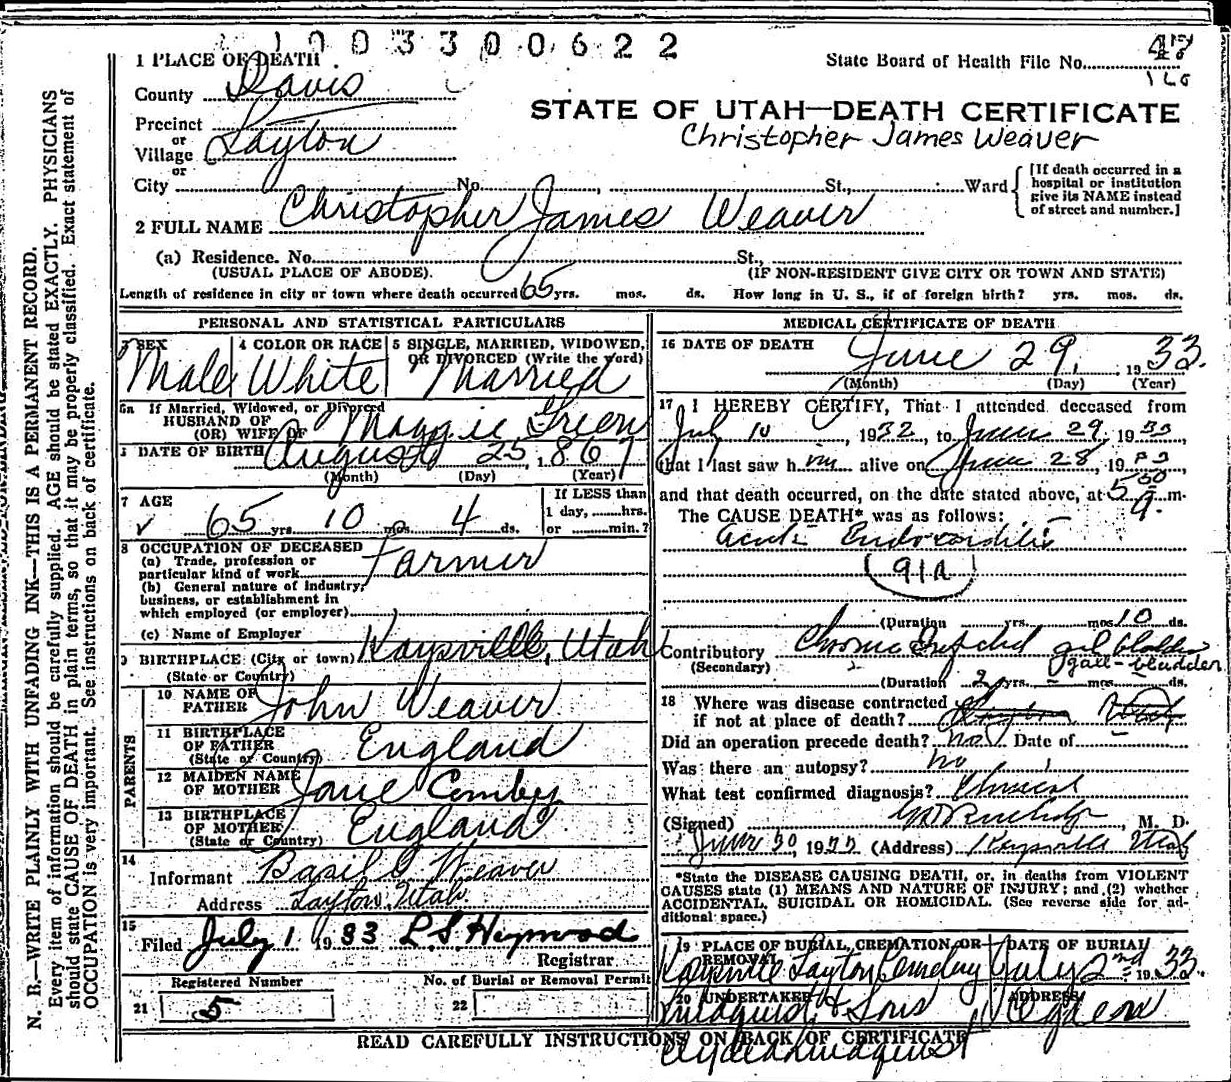 1003300622
1 PLACE OF DEATH
State Board of Health File No. 47
160
County Davis
STATE OF UTAH—DEATH CERTIFICATE
Christopher James Weaver
Precinct
or
Village Layton
or
City No. , St., Ward
[If death occurred in a
hospital or institution
give its NAME instead
of street and number.]
2 FULL NAME Christopher James Weaver
(a) Residence. No. St.,
(USUAL PLACE OF ABODE). (IF NON-RESIDENT GIVE CITY OR TOWN AND STATE)
Length of residence in city or town where death occurred 65 yrs. mos. ds. How long in U. S., if of foreign birth? yrs. mos. ds.
PERSONAL AND STATISTICAL PARTICULARS
3 SEX
Male
4 COLOR OR RACE
White
5 SINGLE, MARRIED, WIDOWED,
OR DIVORCED (Write the word)
Married
5a If Married, Widowed, or Divorced
HUSBAND OF
(OR) WIFE OF Maggie Green
6 DATE OF BIRTH August 25, 1867
(Month) (Day) (Year)
7 AGE
65 yrs. 10 mos. 4 ds.
If LESS than
1 day, hrs.
or min.?
8 OCCUPATION OF DECEASED
(a) Trade, profession or
particular kind of work Farmer
(b) General nature of industry,
business, or establishment in
which employed (or employer)
(c) Name of Employer
9 BIRTHPLACE (City or town) Kaysville, Utah
(State or Country)
PARENTS
10 NAME OF
FATHER John Weaver
11 BIRTHPLACE
OF FATHER England
(State or Country)
12 MAIDEN NAME
OF MOTHER Jane Comby
13 BIRTHPLACE
OF MOTHER England
(State or Country)
14
Informant Basil C Weaver
Address Layton, Utah.
15
Filed July 1 1933 L S Heywood
Registrar
Registered Number
21 5
No. of Burial or Removal Permit
22
MEDICAL CERTIFICATE OF DEATH
16 DATE OF DEATH June 29, 1933.
(Month) (Day) (Year)
17 I HEREBY CERTIFY, That I attended deceased from
July 10, 1932, to June 29, 1933,
that I last saw him alive on June 28, 1933
and that death occurred, on the date stated above, at 5 50 a. m.
The CAUSE DEATH* was as follows:
Acute Endocarditis
91A
(Duration yrs. mos. 10 ds.
Contributory Chronic Infected gal bladder
(Secondary) gall-bladder
(Duration 2 yrs. - mos. ds.
18 Where was disease contracted
if not at place of death? Layton Utah
Did an operation precede death? No Date of
Was there an autopsy? no
What test confirmed diagnosis? Clinical
(Signed) , M. D.
June 30, 1933 (Address) Kaysville Utah
*State the DISEASE CAUSING DEATH, or, in deaths from VIOLENT
CAUSES state (1) MEANS AND NATURE OF INJURY; and (2) whether
ACCIDENTAL, SUICIDAL OR HOMICIDAL. (See reverse side for ad-
ditional space.)
19 PLACE OF BURIAL, CREMATION OR
REMOVAL
Kaysville Layton Cemetery
DATE OF BURIAL
July 2nd 1933
20 UNDERTAKER
Lindquist & Sons
ADDRESS
Ogden
READ CAREFULLY INSTRUCTIONS ON BACK OF CERTIFICATE
Clyde Lindquist
N. B.—WRITE PLAINLY WITH UNFADING INK—THIS IS A PERMANENT RECORD.
Every item of information should be carefully supplied. AGE should be stated EXACTLY. PHYSICIANS
should state CAUSE OF DEATH in plain terms, so that it may be properly classified. Exact statement of
OCCUPATION is very important. See instructions on back of certificate.